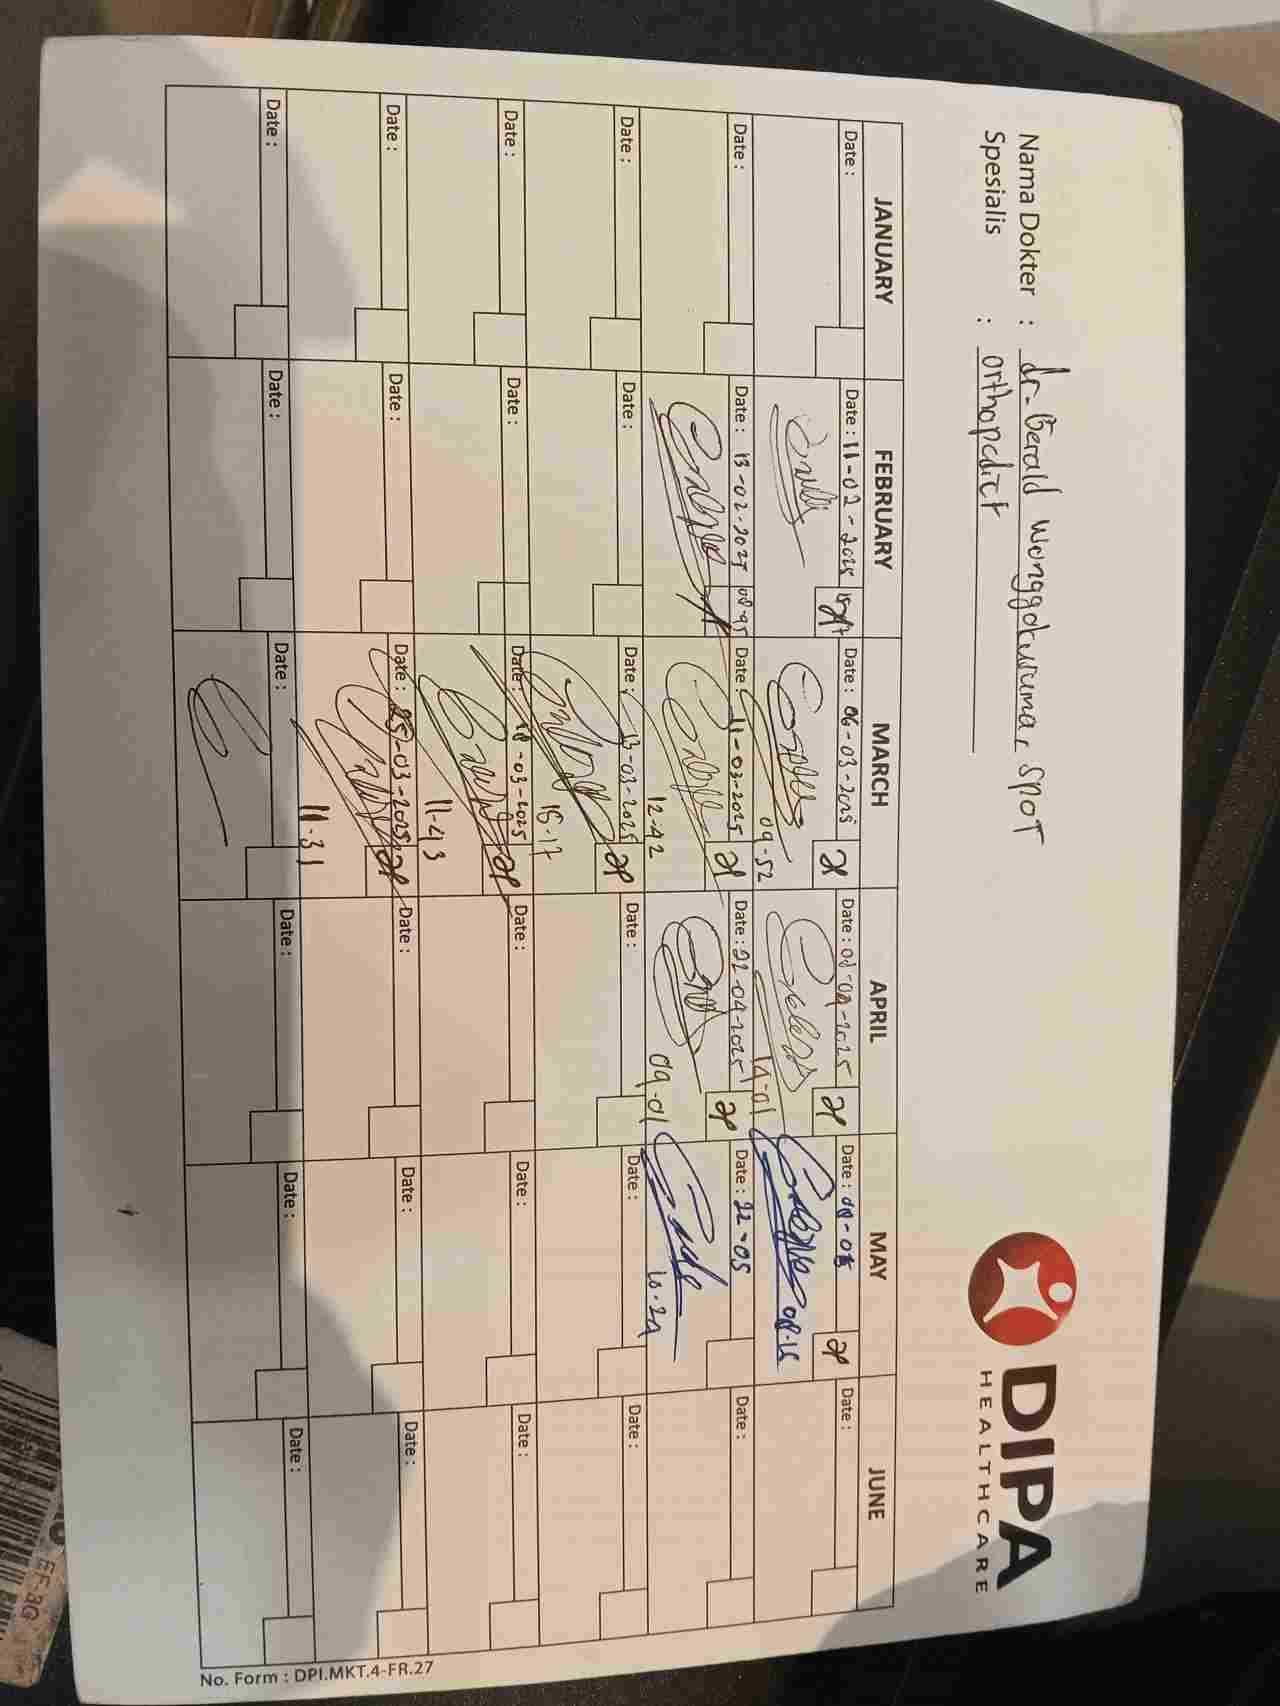 Nama Dokter : dr. Gerald Wonggokusuma, SpOT
Spesialis : orthopedict
DIPA
HEALTHCARE
JANUARY FEBRUARY MARCH APRIL MAY JUNE
Date : Date : 11-02-2025 Date : 06-03-2025 Date : 08-04-2025 Date : 08-05 Date :
09-52 14-01 08-15
Date : Date : 13-02-2025 Date : 11-03-2025 Date : 22-04-2025 Date : 22-05 Date :
12-42 09-01 10-24
Date : Date : Date : 13-03-2025 Date : Date : Date :
15-17
Date : Date : Date : 18-03-2025 Date : Date : Date :
11-43
Date : Date : Date : 25-03-2025 Date : Date : Date :
11-31
Date : Date : Date : Date : Date : Date :
No. Form : DPI.MKT.4-FR.27